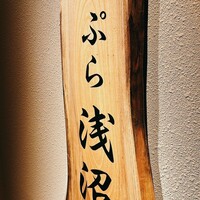 ぷら浅沼